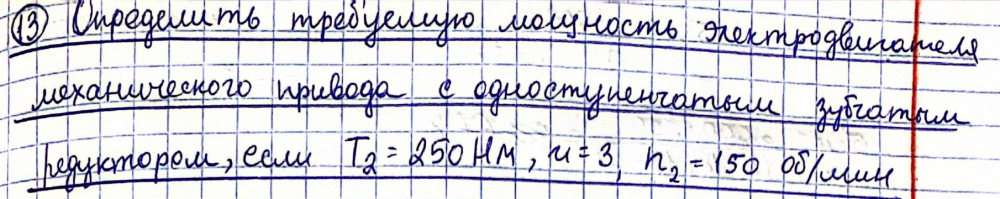 13) Определить требуемую мощность электродвигателя
механического привода с одноступенчатым зубчатым
редуктором, если T₂ = 250 Нм, u = 3, n₂ = 150 об/мин